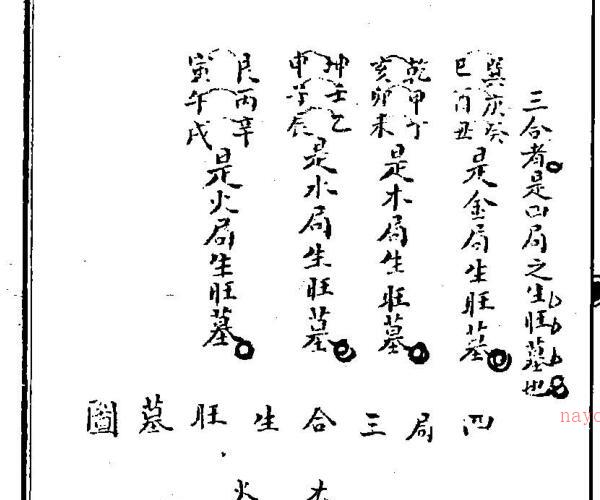 三合者是四局之生旺墓也
巽庚癸
巳酉丑
是金局生旺墓
乾甲丁
亥卯未
是木局生旺墓
坤壬乙
申子辰
是水局生旺墓
艮丙辛
寅午戌
是火局生旺墓
四局三合生旺墓圖
木
火
nayo